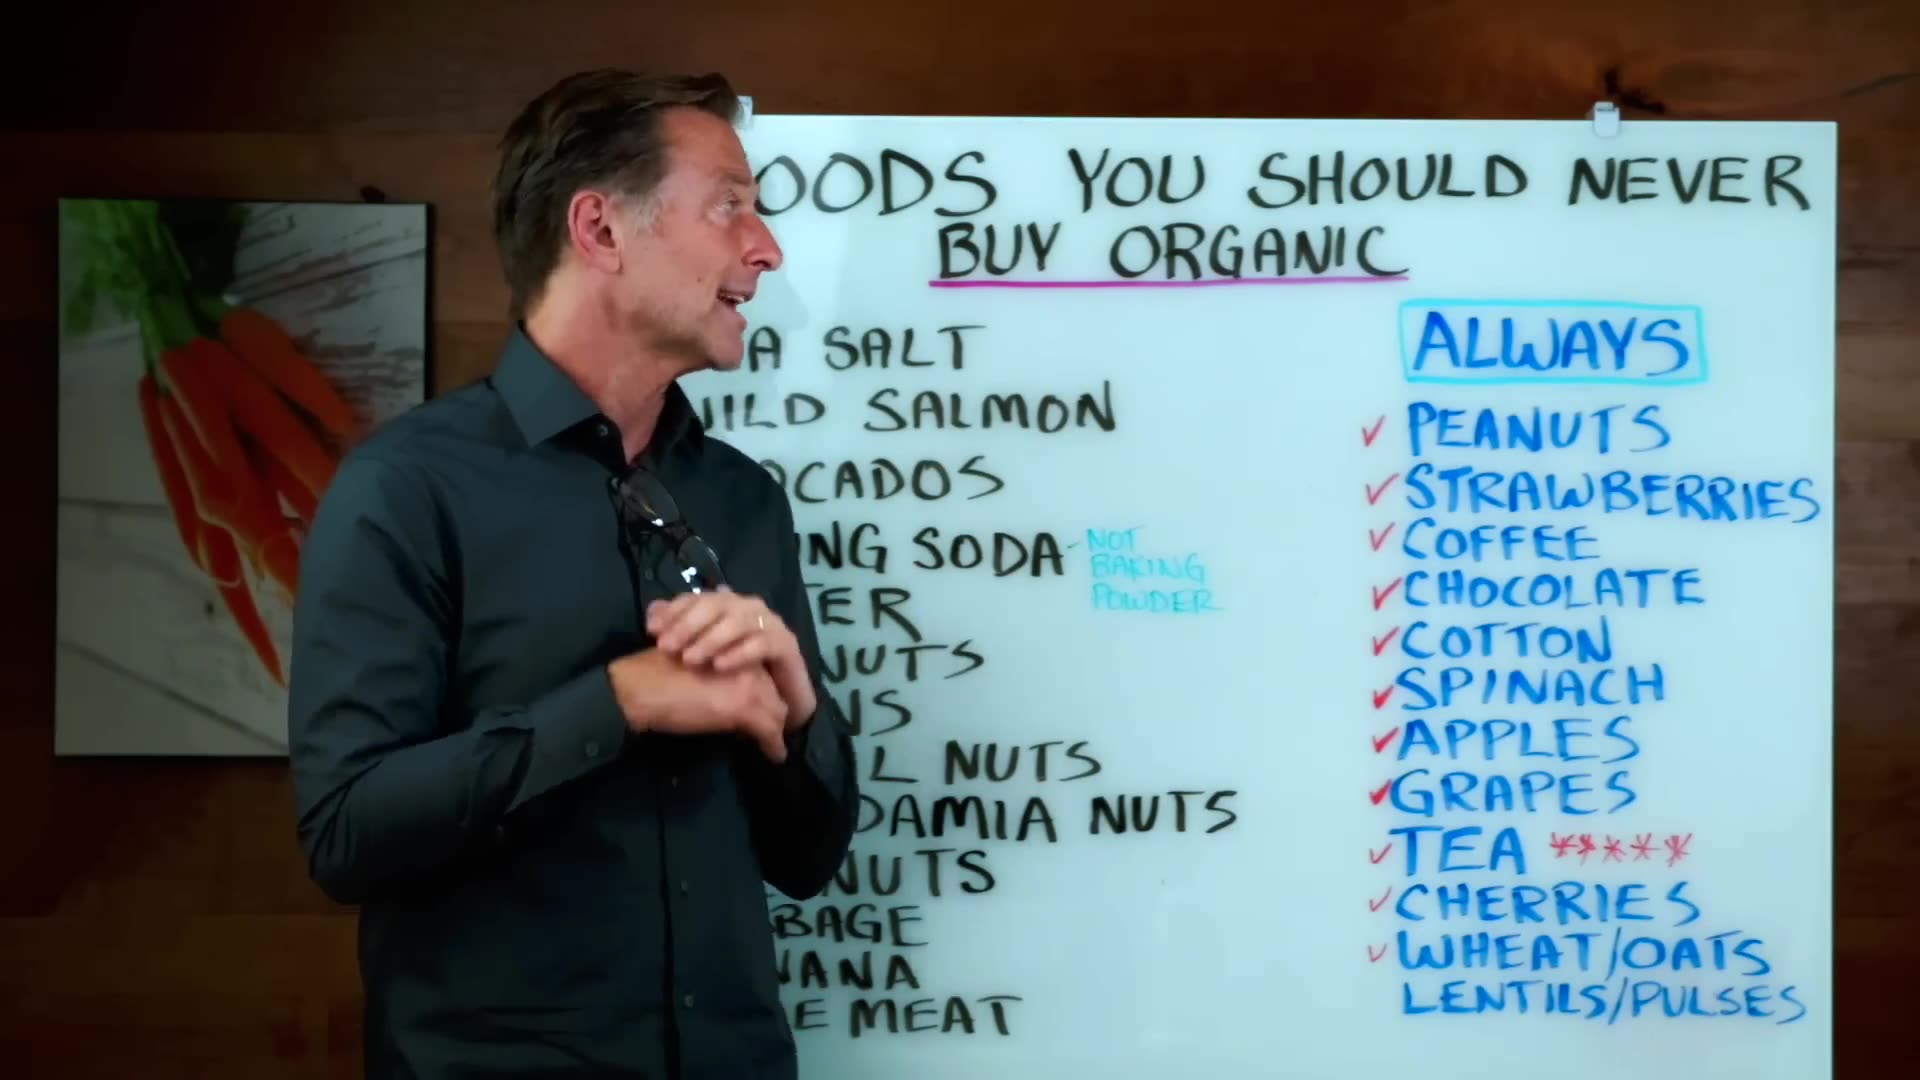 OODS YOU SHOULD NEVER
BUY ORGANIC
A SALT
WILD SALMON
OCADOS
ING SODA - NOT
BAKING
POWDER
TER
NUTS
NS
L NUTS
DAMIA NUTS
NUTS
BAGE
NANA
E MEAT
ALWAYS
✓ PEANUTS
✓ STRAWBERRIES
✓ COFFEE
✓ CHOCOLATE
✓ COTTON
✓ SPINACH
✓ APPLES
✓ GRAPES
✓ TEA *****
✓ CHERRIES
✓ WHEAT/OATS
LENTILS/PULSES